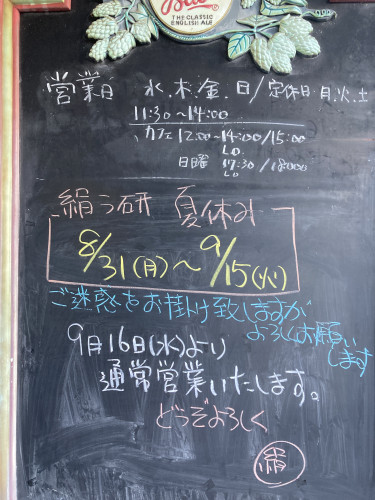 THE CLASSIC
ENGLISH ALE
営業日 水.木.金.日/定休日 月.火.土
11:30〜14:00
カフェ 12:00〜14:00/15:00
L.O
日曜 17:30/18:000
L.O
絹う研 夏休み
8/31(月)〜9/15(火)
ご迷惑をお掛け致しますが
よろしくお願い
します
9月16日(水)より
通常営業いたします。
どうぞよろしく
絹